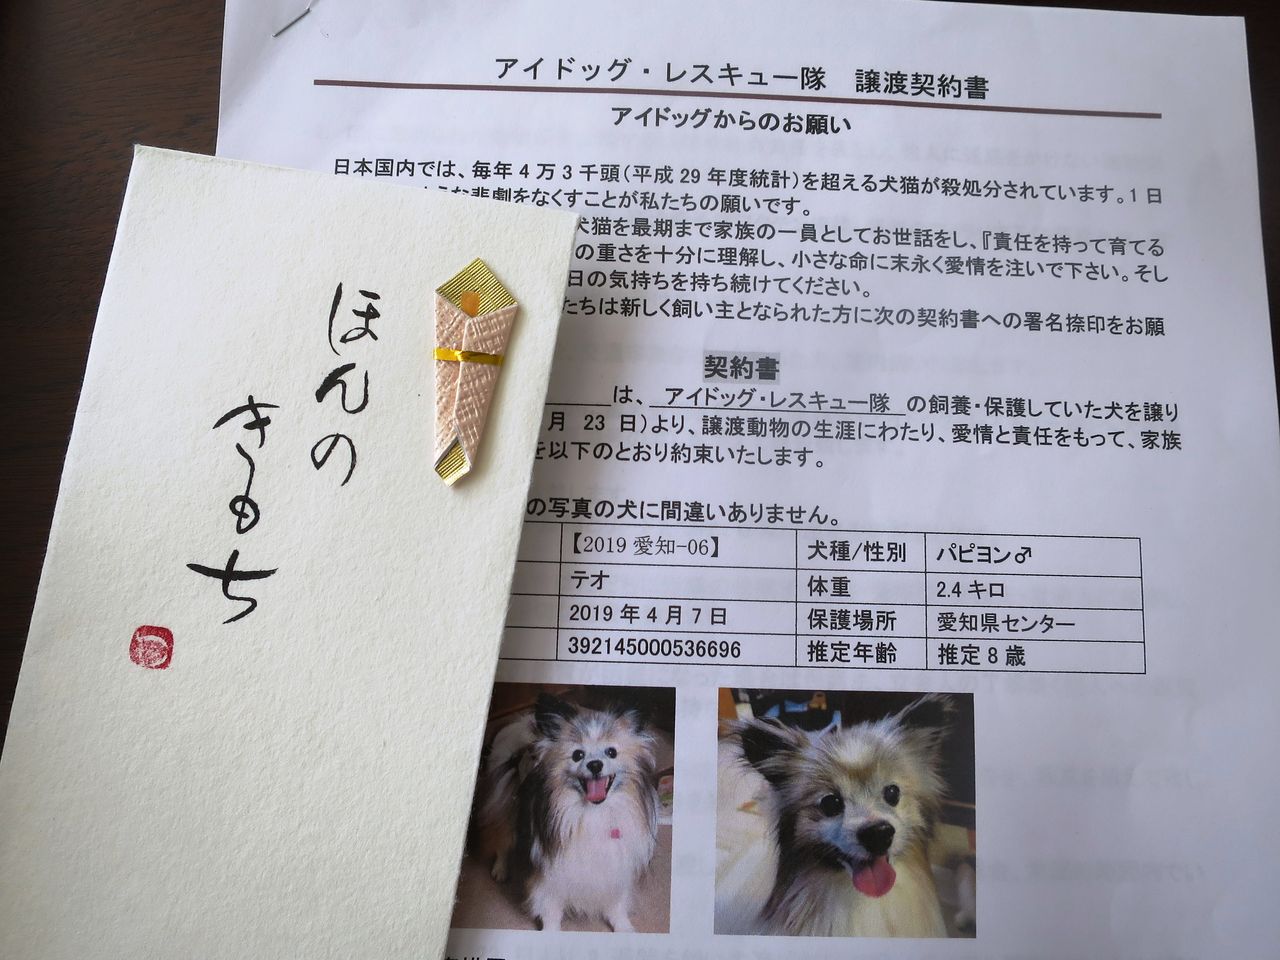 アイドッグ・レスキュー隊　譲渡契約書
アイドッグからのお願い
日本国内では、毎年４万３千頭（平成 29 年度統計）を超える犬猫が殺処分されています。1 日
な悲劇をなくすことが私たちの願いです。
犬猫を最期まで家族の一員としてお世話をし、『責任を持って育てる
の重さを十分に理解し、小さな命に末永く愛情を注いで下さい。そし
日の気持ちを持ち続けてください。
たちは新しく飼い主となられた方に次の契約書への署名捺印をお願
契約書
は、アイドッグ・レスキュー隊 の飼養・保護していた犬を譲り
月 23 日）より、譲渡動物の生涯にわたり、愛情と責任をもって、家族
を以下のとおり約束いたします。
の写真の犬に間違いありません。
【2019 愛知-06】 犬種/性別 パピヨン♂
テオ 体重 2.4 キロ
2019 年 4 月 7 日 保護場所 愛知県センター
392145000536696 推定年齢 推定 8 歳
ほんの
きもち